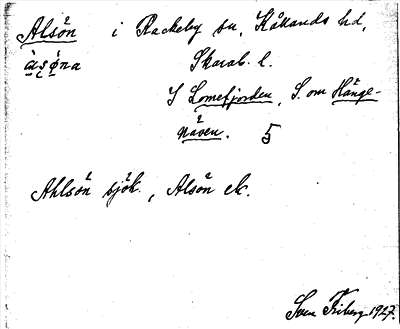 Alsön i Rackeby sn, Kållands hd,
àsǿna Skarab. l.
I Lomefjorden, S. om Hänge-
näven. 5
Ahlsön sjök., Alsön ek.
Sven Friberg 1927.